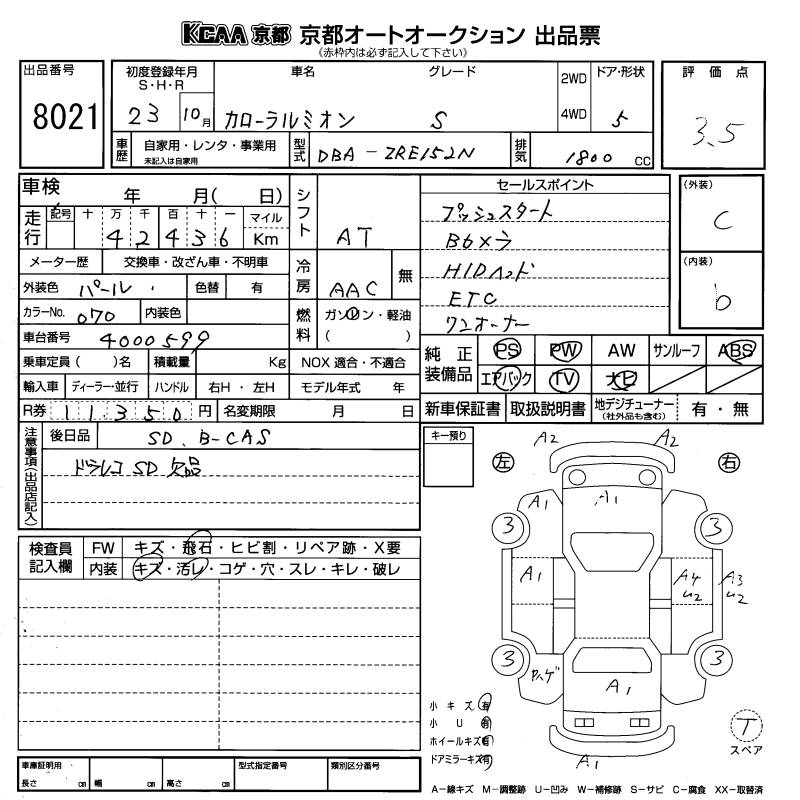 KCAA 京都 京都オートオークション 出品票
《赤枠内は必ず記入して下さい》
出品番号 8021
初度登録年月 S・H・R 23 10月
車名 グレード カローラルミオン S
2WD 4WD
ドア・形状 5
評価点 3.5
車歴 自家用・レンタ・事業用 未記入は自家用
型式 DBA-ZRE152N
排気 1800 cc
車検 年 月( 日)
走行 記号 十 万 千 百 十 一 マイル Km
42436
シフト AT
メーター歴 交換車・改ざん車・不明車
冷房 AAC 無
外装色 パール 色替 有
カラーNo. 070 内装色
燃料 ガソリン・軽油 ( )
車台番号 4000599
乗車定員( )名 積載量 Kg NOX 適合・不適合
輸入車 ディーラー・並行 ハンドル 右H・左H モデル年式 年
R券 11350円 名変期限 月 日
セールスポイント
プッシュスタート
Bカメラ
HIDヘッド
ETC
ワンオーナー
(外装) C
(内装) b
純正装備品 PS PW AW サンルーフ ABS
エアバック TV ナビ
新車保証書 取扱説明書 地デジチューナー (社外品も含む) 有・無
注意事項(出品店記入)
後日品 SD、B-CAS
ドラレコ SD 欠品
キー預り
左 右
A2 A2
A1 A1
3 3
A1 A4 U2 A3 U2
3 3
ハゲ A1
A1
検査員記入欄
FW キズ・飛石・ヒビ割・リペア跡・X要
内装 キズ・汚レ・コゲ・穴・スレ・キレ・破レ
小キズ 有
小 U 有
ホイールキズ 有
ドアミラーキズ 有
T スペア
車庫証明用 長さ cm 幅 cm 高さ cm
型式指定番号 類別区分番号
A-線キズ M-調整跡 U-凹み W-補修跡 S-サビ C-腐食 XX-取替済